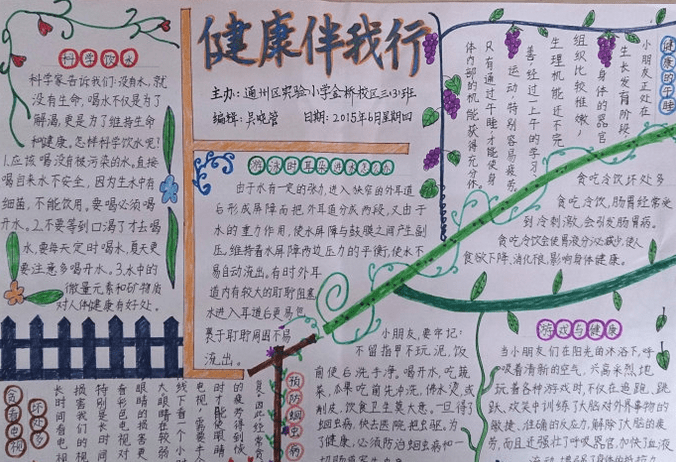 健康伴我行
主办：通州区实验小学金桥校区三(3)班
编辑：吴晓管 日期：2015年6月星期四
科学饮水
科学家告诉我们：没有水，就
没有生命，喝水不仅是为了
解渴，更是为了维持生命
和健康，怎样科学饮水呢？
1.应该喝没有被污染的水。直接
喝自来水不安全，因为生水中有
细菌，不能饮用。要喝必须喝
开水。2.不要等到口渴了才去喝
水，要每天定时喝水，夏天更
要注意多喝开水。3.水中的
微量元素和矿物质
对人体健康有好处。
游泳时耳朵进水怎么办
由于水有一定的张力，进入狭窄的外耳道
后形成屏障而把外耳道分成两段，又由于
水的重力作用，使水屏障与鼓膜之间产生副
压，维持着水屏障两边压力的平衡，使水不
易自动流出。有时外耳
道内有较大的耵聍阻塞
水进入耳道后更易包
裹于耵聍周围不易
流出。
健康的午睡
小朋友正处在
生长发育阶段
身体的器官
组织比较稚嫩，
生理机能还不完
善，经过一上午的学习、
运动，特别容易疲劳。
只有通过午睡才能使身
体内部的机能获得充分休
贪吃冷饮坏处多
贪吃冷饮，肠胃经常受
到冷刺激，会引发肠胃病。
贪吃冷饮会使胃液分泌减少，使人
食欲下降，消化很，影响身体健康。
游戏与健康
当小朋友们在阳光的沐浴下，呼
吸着清新的空气，兴高采烈地
玩着各种游戏时，不仅在追跑、跳
跃、欢笑中训练了大脑对外界事物的
敏捷、准确的反应力，解除了大脑的疲
劳，而且还强壮了呼吸器官，加快了血液
预防蛔虫病
小朋友，要牢记：
不留指甲不玩泥，饭
前便后洗手净。喝开水，吃蔬
菜，瓜果吃前先冲洗，沸水烫，或
削皮，饮食卫生莫大意。一旦得了
蛔虫病，快去医院把虫驱。为
了健康，必须防治蛔虫病和一
贪看电视
坏处多
长时间看电视
损害我们的视
特别是长时间
看彩色电视对
眼睛的损害更
大，眼睛在较弱
线下看一个小时
电视，需要半
时才能使眼睛
的疲劳得到恢
复，因此经常贪